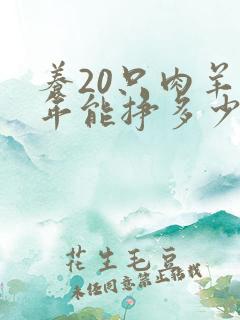 养20只肉羊
年能挣多少
花生毛豆
未经同意禁止转载